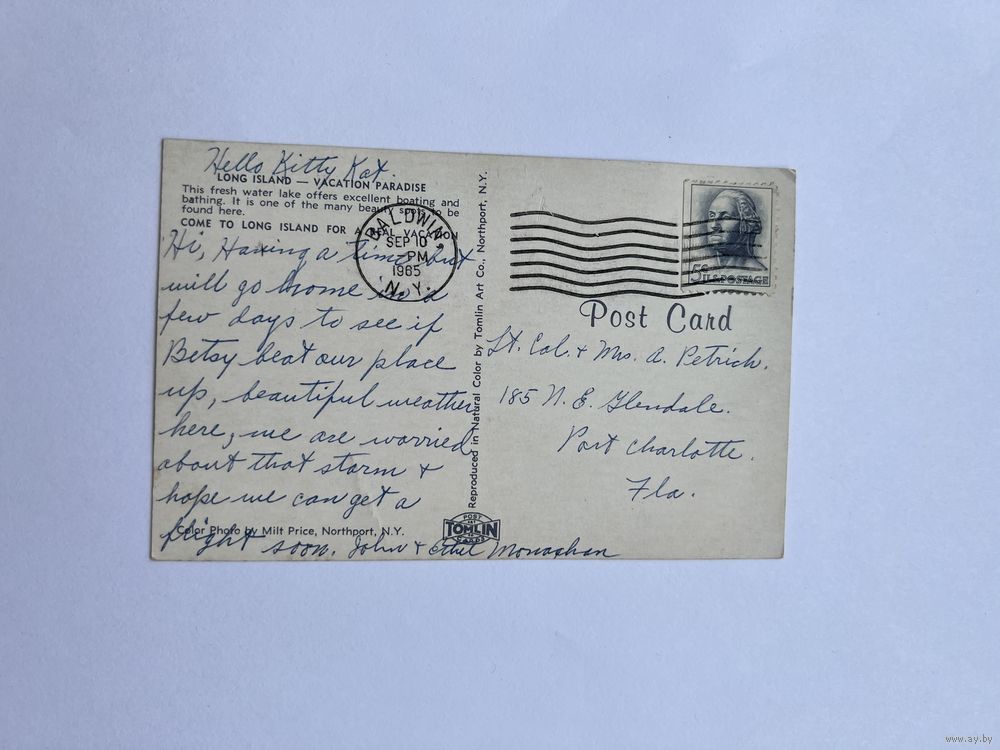 Hello Kitty Kat.
LONG ISLAND — VACATION PARADISE
This fresh water lake offers excellent boating and
bathing. It is one of the many beauty spots to be
found here.
COME TO LONG ISLAND FOR A REAL VACATION
Hi, Having a time but
will go home in a
few days to see if
Betsy beat our place
up, beautiful weather
here, we are worried
about that storm &
hope we can get a
Color Photo by Milt Price, Northport, N.Y.
flight soon. John & Ethel Monaghan
BALDWIN,
SEP 10
PM
1965
N.Y.
Reproduced in Natural Color by Tomlin Art Co., Northport, N.Y.
POST
TOMLIN
CARDS
5c U.S. POSTAGE
Post Card
Lt. Col. & Mrs. A. Petrich.
185 N. E. Glendale.
Port Charlotte.
Fla.
www.ay.by